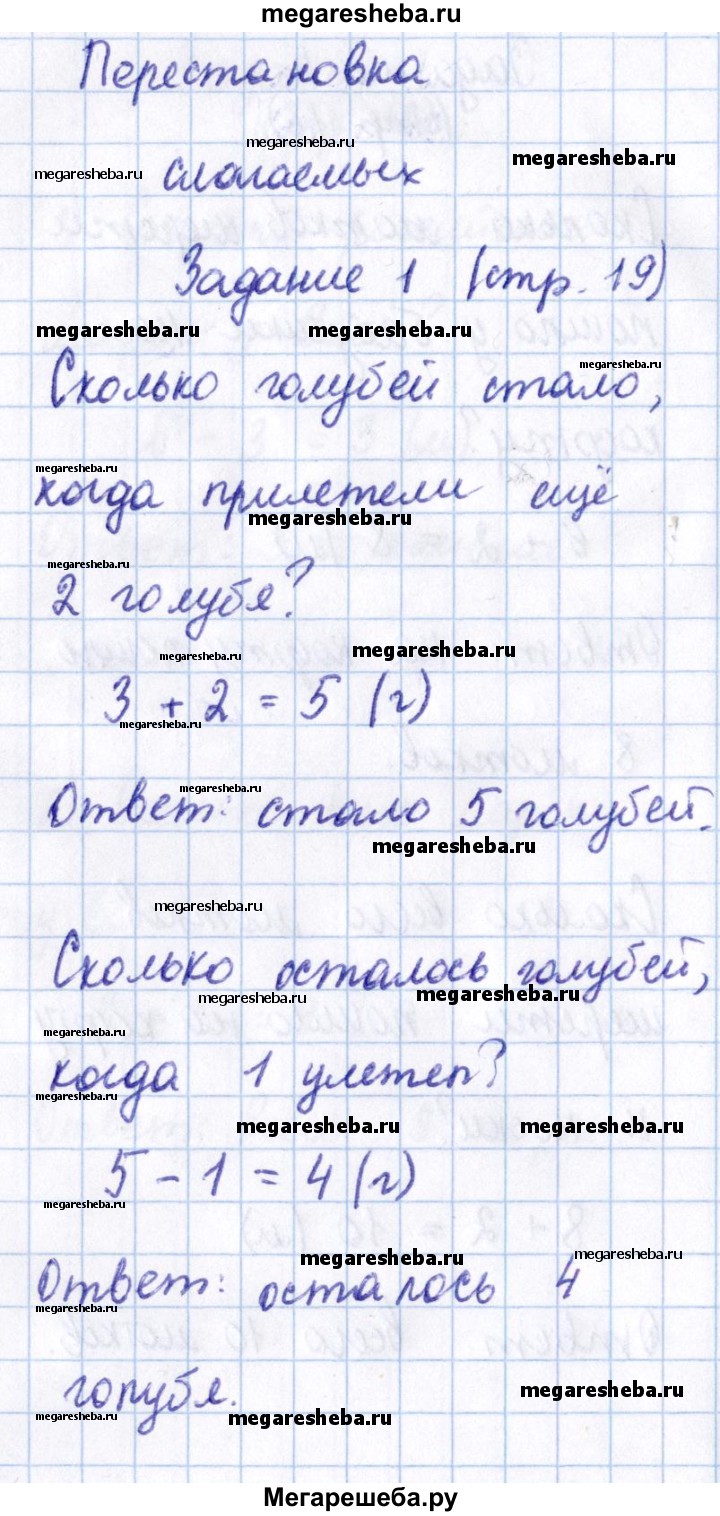 megaresheba.ru
Перестановка
megaresheba.ru
megaresheba.ru
megaresheba.ru слагаемых
Задание 1 (стр. 19)
megaresheba.ru megaresheba.ru
megaresheba.ru
Сколько голубей стало,
megaresheba.ru
когда прилетели ещё
megaresheba.ru
megaresheba.ru
2 голубя?
megaresheba.ru megaresheba.ru
3 + 2 = 5 (г)
megaresheba.ru
megaresheba.ru
Ответ: стало 5 голубей.
megaresheba.ru
megaresheba.ru
Сколько осталось голубей,
megaresheba.ru megaresheba.ru
megaresheba.ru
когда 1 улетел?
megaresheba.ru
megaresheba.ru megaresheba.ru
5 - 1 = 4 (г)
megaresheba.ru
megaresheba.ru megaresheba.ru
Ответ: осталось 4
megaresheba.ru
голубя.
megaresheba.ru megaresheba.ru megaresheba.ru
Мегарешеба.ру